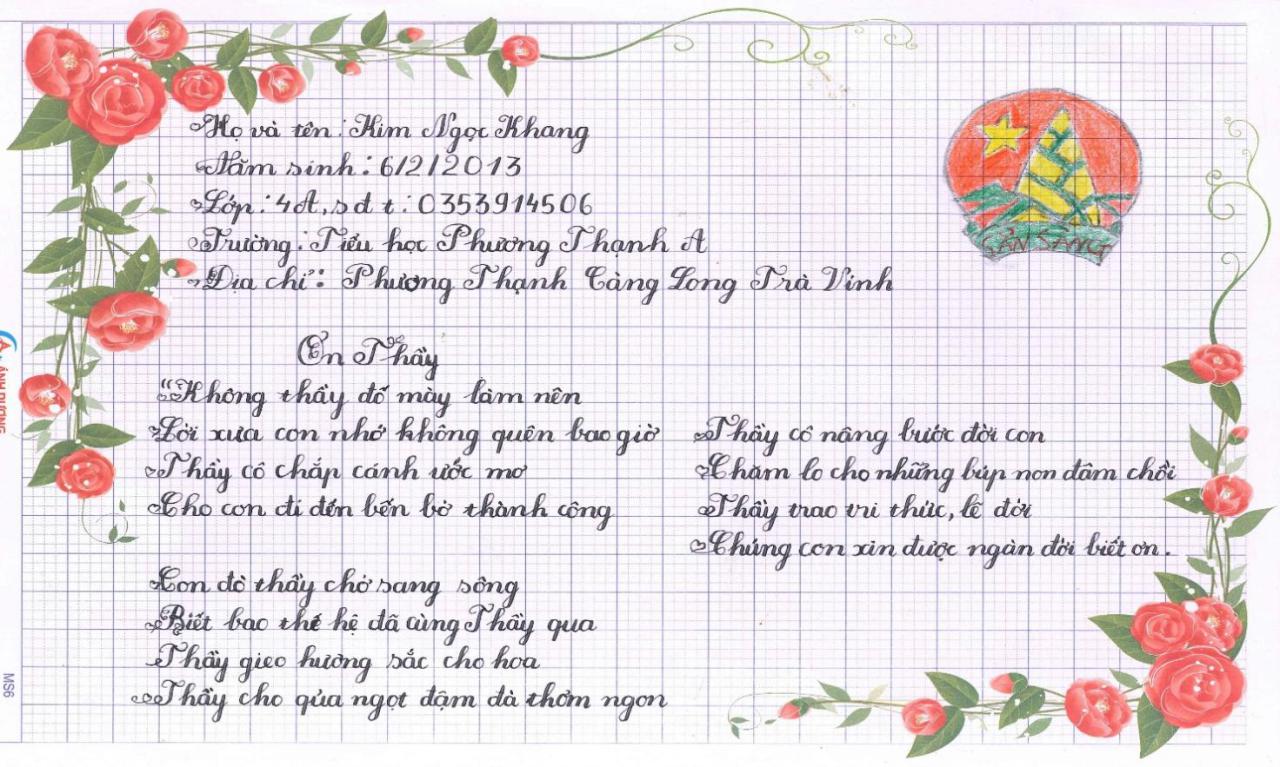 Họ và tên: Kim Ngọc Khang
Năm sinh: 6/2/2013
Lớp: 4A, sđt: 0353914506
Trường: Tiểu học Phương Thạnh A
Địa chỉ: Phương Thạnh Càng Long Trà Vinh
SẴN SÀNG
Ơn Thầy
"Không thầy đố mày làm nên
Lời xưa con nhớ không quên bao giờ
Thầy cô chắp cánh ước mơ
Cho con đi đến bến bờ thành công
Con đò thầy chở sang sông
Biết bao thế hệ đã cùng Thầy qua
Thầy gieo hương sắc cho hoa
Thầy cho qủa ngọt đậm đà thơm ngon
Thầy cô nâng bước đời con
Chăm lo cho những búp non đâm chồi
Thầy trao tri thức, lẽ đời
Chúng con xin được ngàn đời biết ơn.
ÁNH DƯƠNG
MS6